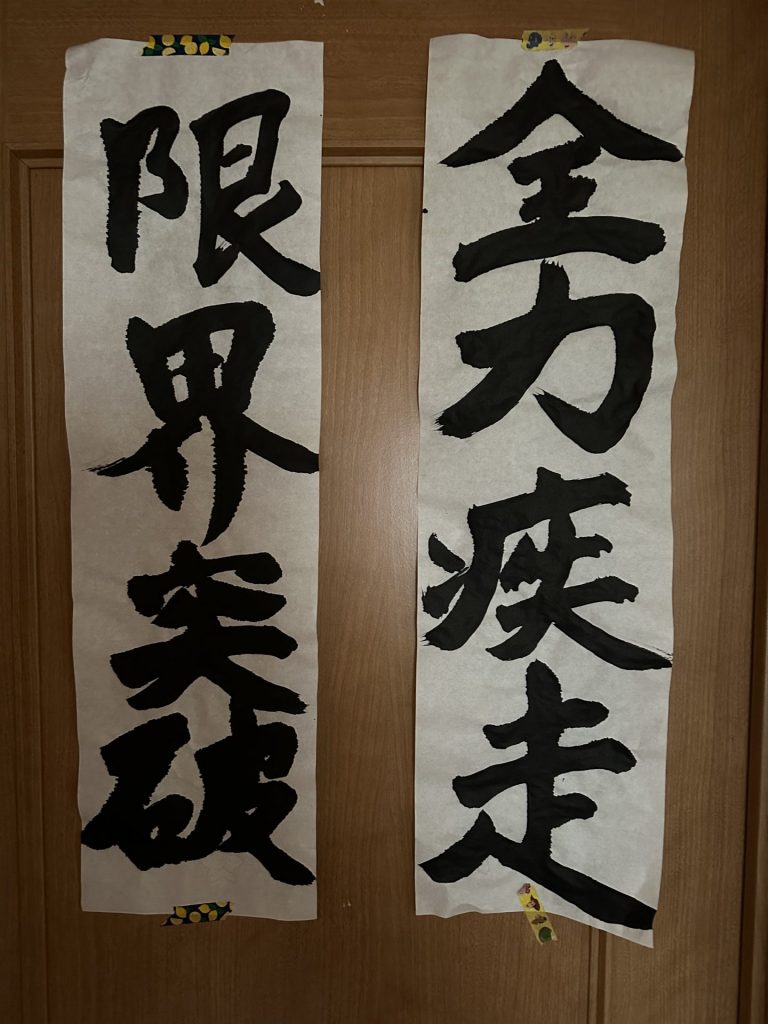 全力疾走
限界突破